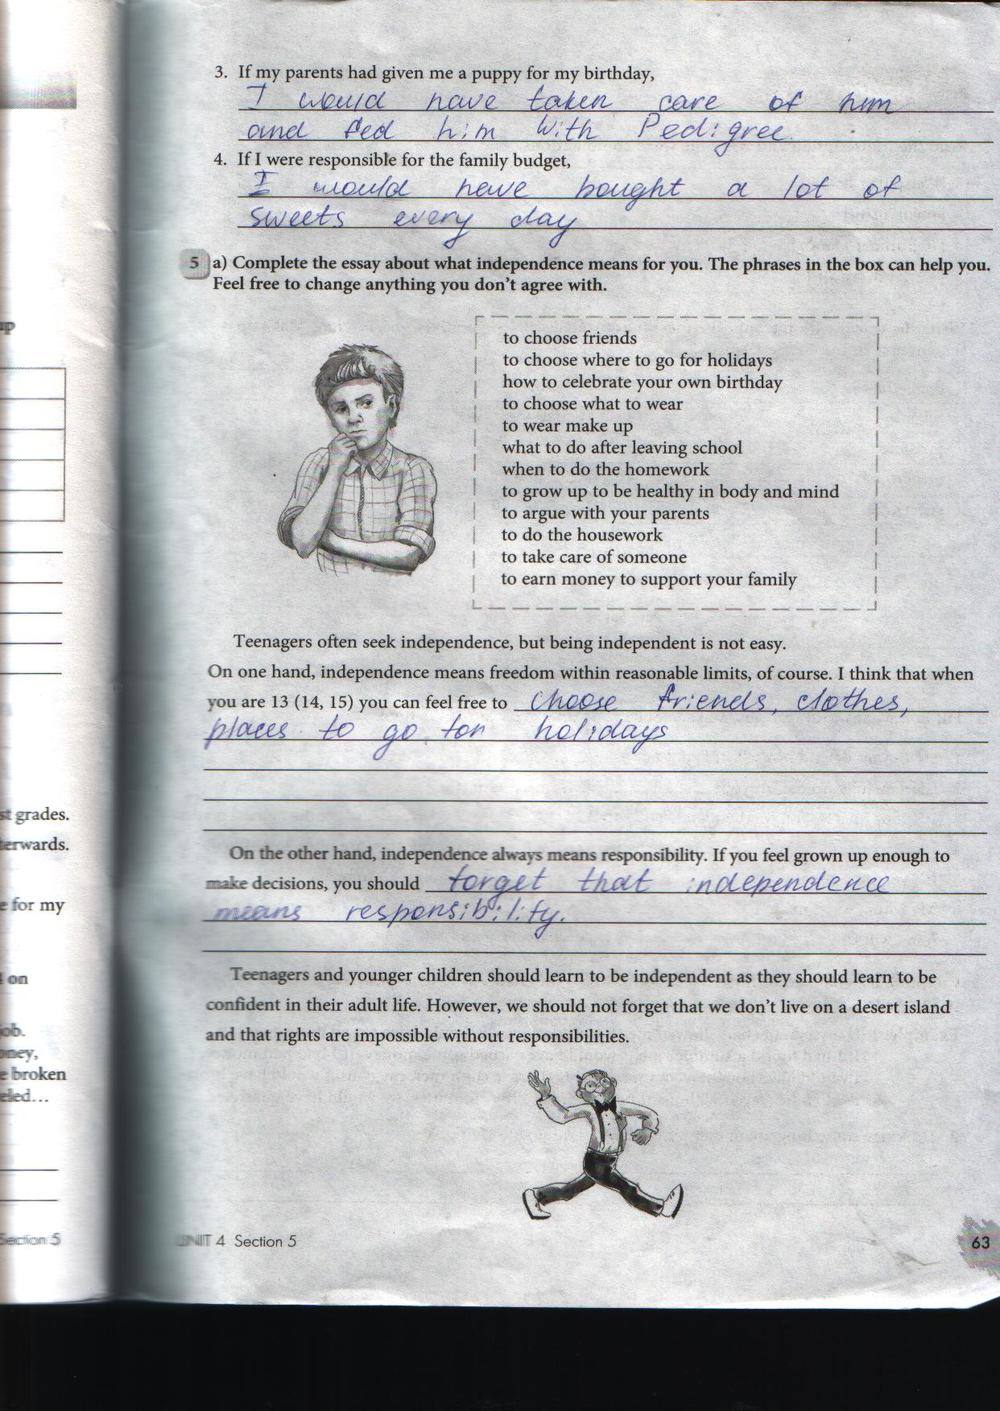 3. If my parents had given me a puppy for my birthday,
I would have taken care of him
and fed him with Pedigree.
4. If I were responsible for the family budget,
I would have bought a lot of
sweets every day
5 a) Complete the essay about what independence means for you. The phrases in the box can help you.
Feel free to change anything you don't agree with.
to choose friends
to choose where to go for holidays
how to celebrate your own birthday
to choose what to wear
to wear make up
what to do after leaving school
when to do the homework
to grow up to be healthy in body and mind
to argue with your parents
to do the housework
to take care of someone
to earn money to support your family
Teenagers often seek independence, but being independent is not easy.
On one hand, independence means freedom within reasonable limits, of course. I think that when
you are 13 (14, 15) you can feel free to choose friends, clothes,
places to go for holidays
On the other hand, independence always means responsibility. If you feel grown up enough to
make decisions, you should forget that independence
means responsibility.
Teenagers and younger children should learn to be independent as they should learn to be
confident in their adult life. However, we should not forget that we don't live on a desert island
and that rights are impossible without responsibilities.
UNIT 4 Section 5
63
st grades.
terwards.
e for my
on
ob.
oney,
e broken
eled...
Section 5